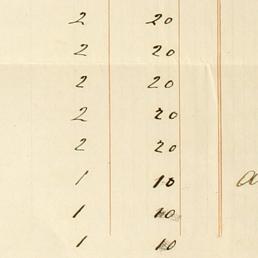 2 20
2 20
2 20
2 20
2 20
1 10 a
1 10
1 10